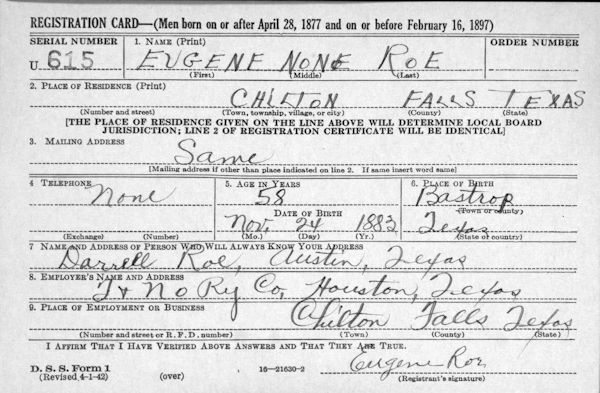 REGISTRATION CARD—(Men born on or after April 28, 1877 and on or before February 16, 1897)
SERIAL NUMBER 1. NAME (Print) ORDER NUMBER
U 615 EUGENE NONE ROE
(First) (Middle) (Last)
2. PLACE OF RESIDENCE (Print)
CHILTON FALLS TEXAS
(Number and street) (Town, township, village, or city) (County) (State)
[THE PLACE OF RESIDENCE GIVEN ON THE LINE ABOVE WILL DETERMINE LOCAL BOARD
JURISDICTION; LINE 2 OF REGISTRATION CERTIFICATE WILL BE IDENTICAL]
3. MAILING ADDRESS
Same
[Mailing address if other than place indicated on line 2. If same insert word same]
4 TELEPHONE 5. AGE IN YEARS 6. PLACE OF BIRTH
None 58 Bastrop
DATE OF BIRTH (Town or county)
Nov. 24 1883 Texas
(Exchange) (Number) (Mo.) (Day) (Yr.) (State or country)
7 NAME AND ADDRESS OF PERSON WHO WILL ALWAYS KNOW YOUR ADDRESS
Darrell Roe, Austin, Texas
8. EMPLOYER'S NAME AND ADDRESS
T & N O Ry Co, Houston, Texas
9. PLACE OF EMPLOYMENT OR BUSINESS
Chilton Falls Texas
(Number and street or R. F. D. number) (Town) (County) (State)
I AFFIRM THAT I HAVE VERIFIED ABOVE ANSWERS AND THAT THEY ARE TRUE.
Eugene Roe
D. S. S. Form 1
(Revised 4-1-42) (over) 16—21630-2 (Registrant's signature)